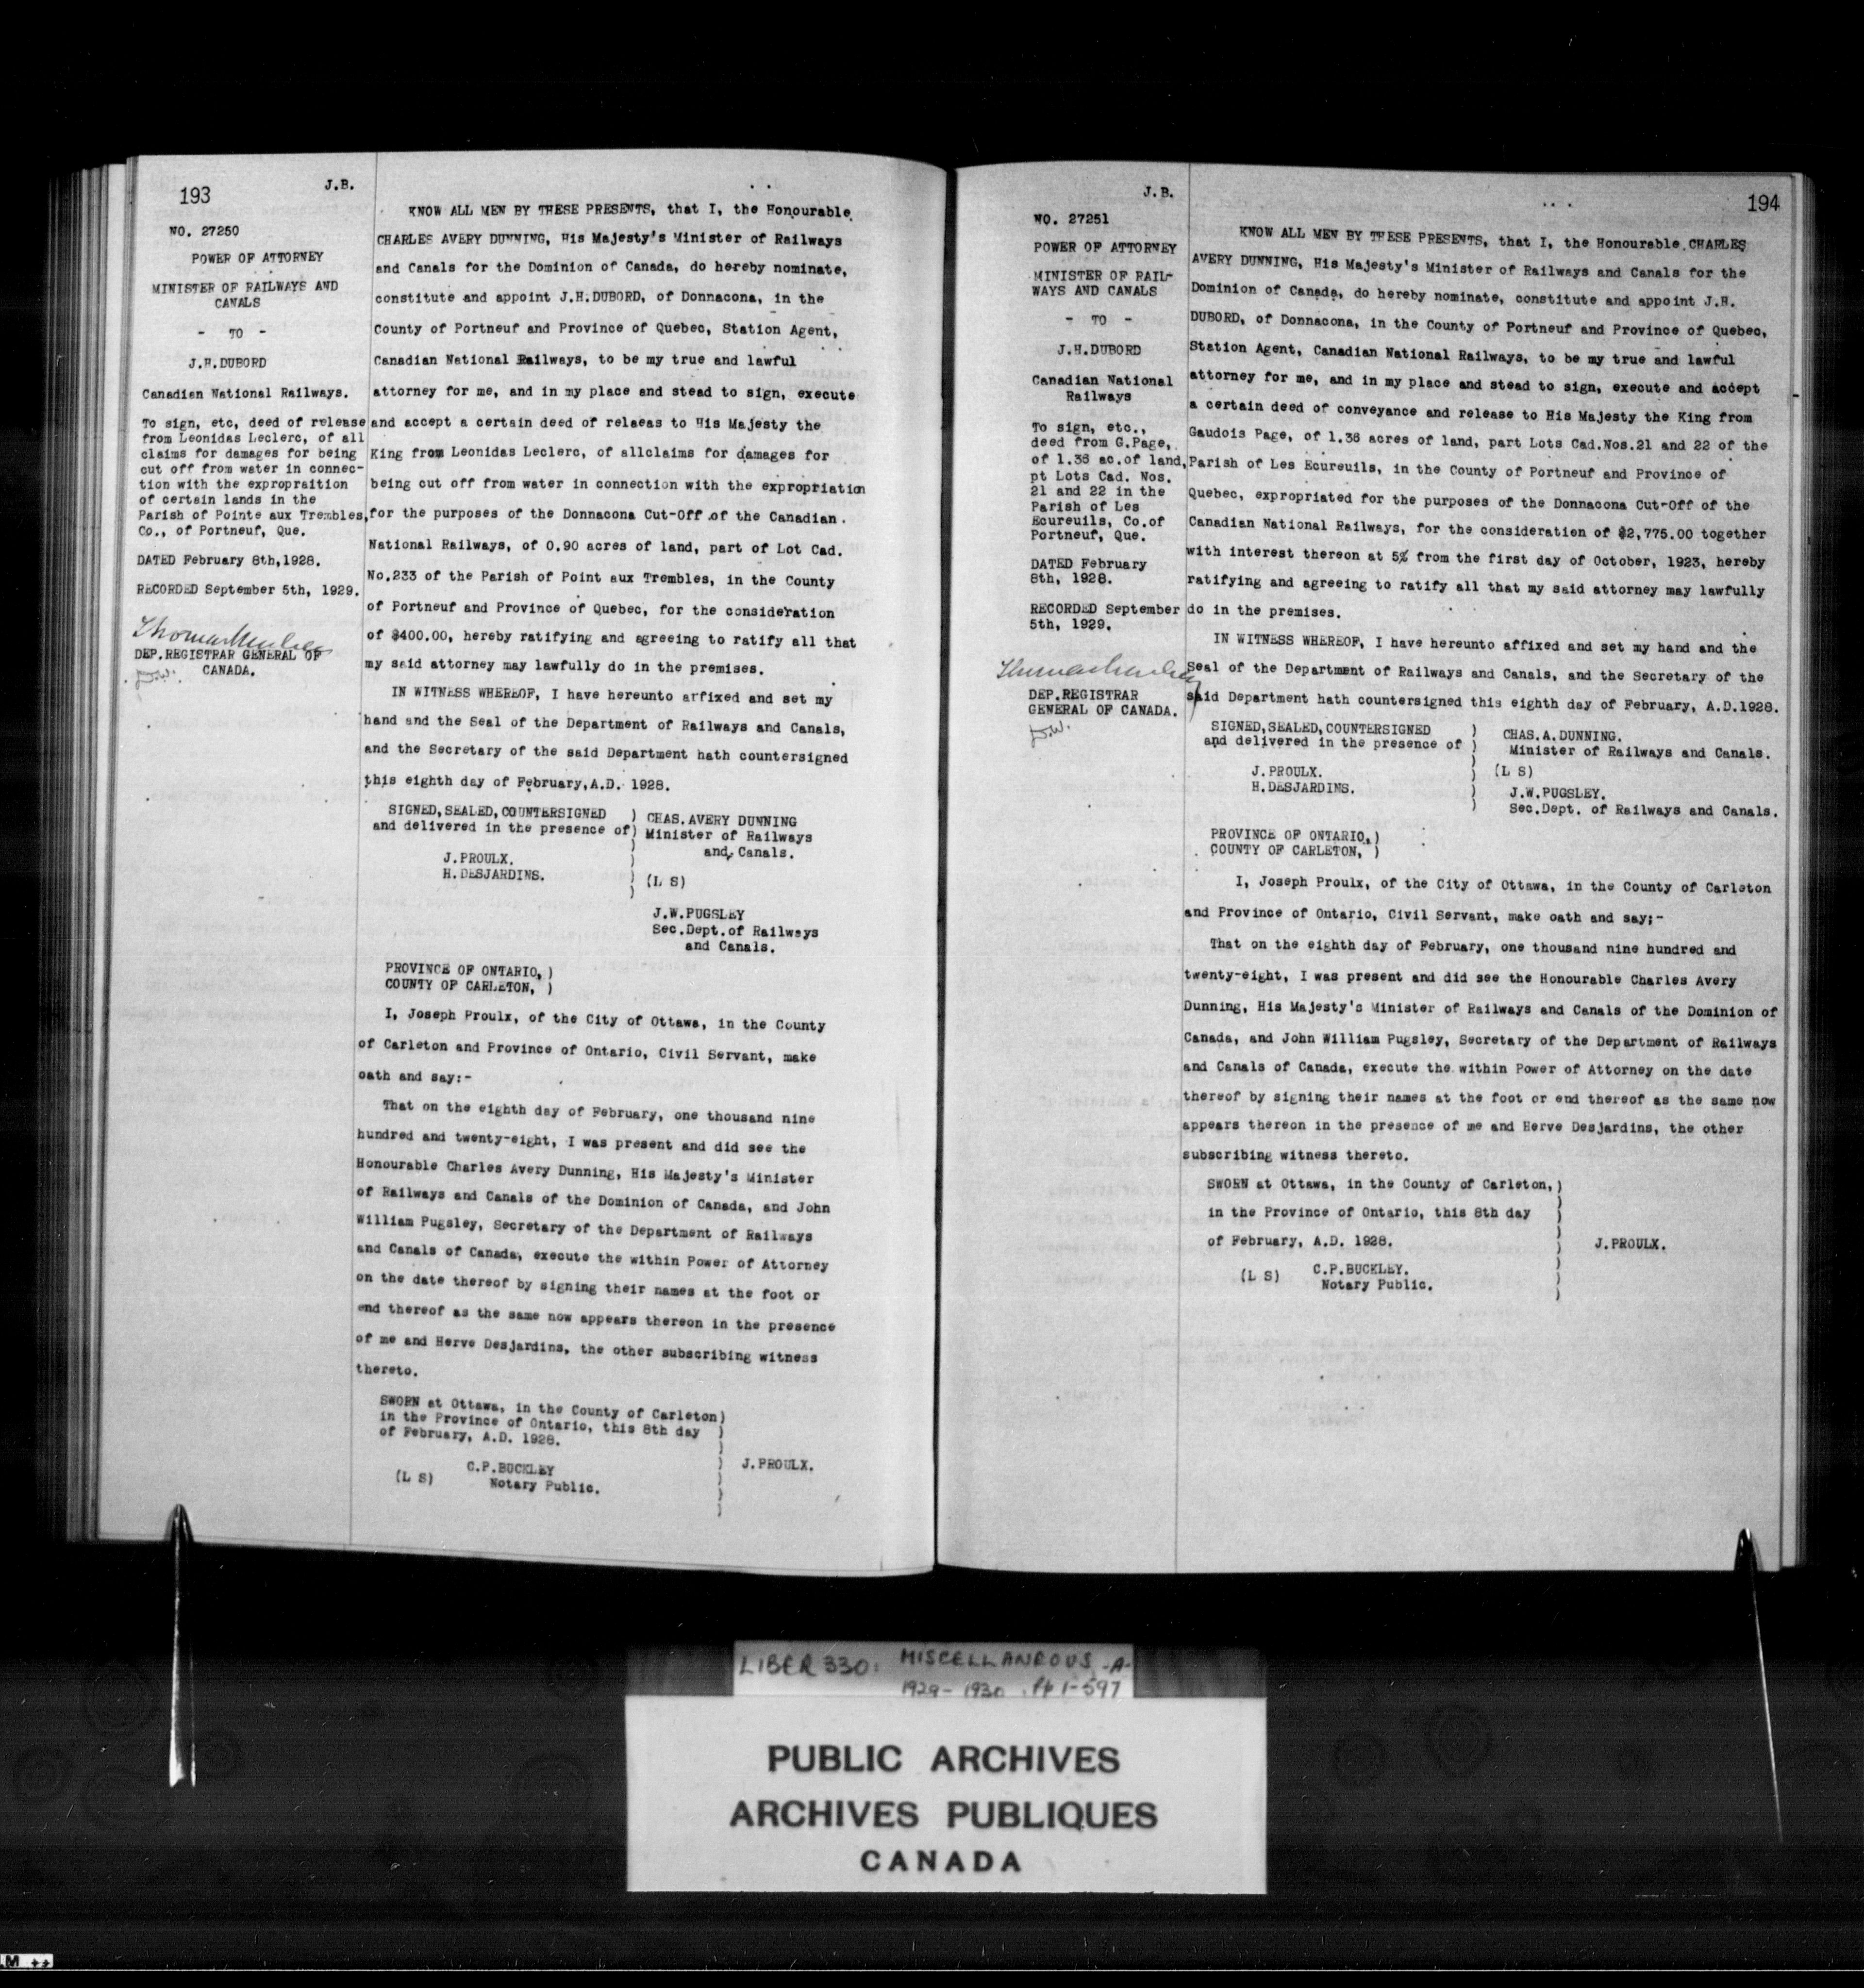 193
J.B.
NO. 27250
POWER OF ATTORNEY
MINISTER OF RAILWAYS AND
CANALS
- TO -
J.H.DUBORD
Canadian National Railways.
To sign, etc, deed of release
from Leonidas Leclerc, of all
claims for damages for being
cut off from water in connec-
tion with the expropraition
of certain lands in the
Parish of Pointe aux Trembles,
Co., of Portneuf, Que.
DATED February 8th,1928.
RECORDED September 5th, 1929.
DEP.REGISTRAR GENERAL OF
CANADA.
KNOW ALL MEN BY THESE PRESENTS, that I, the Honourable
CHARLES AVERY DUNNING, His Majesty's Minister of Railways
and Canals for the Dominion of Canada, do hereby nominate,
constitute and appoint J.H.DUBORD, of Donnacona, in the
County of Portneuf and Province of Quebec, Station Agent,
Canadian National Railways, to be my true and lawful
attorney for me, and in my place and stead to sign, execute
and accept a certain deed of relaeas to His Majesty the
King from Leonidas Leclerc, of allclaims for damages for
being cut off from water in connection with the expropriation
for the purposes of the Donnacona Cut-Off of the Canadian
National Railways, of 0.90 acres of land, part of Lot Cad.
No.233 of the Parish of Point aux Trembles, in the County
of Portneuf and Province of Quebec, for the consideration
of $400.00, hereby ratifying and agreeing to ratify all that
my said attorney may lawfully do in the premises.
IN WITNESS WHEREOF, I have hereunto affixed and set my
hand and the Seal of the Department of Railways and Canals,
and the Secretary of the said Department hath countersigned
this eighth day of February,A.D. 1928.
SIGNED,SEALED,COUNTERSIGNED ) CHAS.AVERY DUNNING
and delivered in the presence of) Minister of Railways
) and Canals.
J.PROULX. )
H.DESJARDINS. ) (L S)
)
J.W.PUGSLEY
Sec.Dept.of Railways
and Canals.
PROVINCE OF ONTARIO, )
COUNTY OF CARLETON, )
I, Joseph Proulx, of the City of Ottawa, in the County
of Carleton and Province of Ontario, Civil Servant, make
oath and say:-
That on the eighth day of February, one thousand nine
hundred and twenty-eight, I was present and did see the
Honourable Charles Avery Dunning, His Majesty's Minister
of Railways and Canals of the Dominion of Canada, and John
William Pugsley, Secretary of the Department of Railways
and Canals of Canada, execute the within Power of Attorney
on the date thereof by signing their names at the foot or
end thereof as the same now appears thereon in the presence
of me and Herve Desjardins, the other subscribing witness
thereto.
SWORN at Ottawa, in the County of Carleton)
in the Province of Ontario, this 8th day )
of February, A.D. 1928. )
C.P.BUCKLEY ) J.PROULX.
(L S) Notary Public. )
)
)
194
J.B.
NO. 27251
POWER OF ATTORNEY
MINISTER OF RAIL-
WAYS AND CANALS
- TO -
J.H.DUBORD
Canadian National
Railways
To sign, etc.,
deed from G.Page,
of 1.36 ac.of land,
pt Lots Cad. Nos.
21 and 22 in the
Parish of Les
Ecureuils, Co.of
Portneuf, Que.
DATED February
8th, 1928.
RECORDED September
5th, 1929.
DEP.REGISTRAR
GENERAL OF CANADA.
KNOW ALL MEN BY THESE PRESENTS, that I, the Honourable CHARLES
AVERY DUNNING, His Majesty's Minister of Railways and Canals for the
Dominion of Canada, do hereby nominate, constitute and appoint J.H.
DUBORD, of Donnacona, in the County of Portneuf and Province of Quebec,
Station Agent, Canadian National Railways, to be my true and lawful
attorney for me, and in my place and stead to sign, execute and accept
a certain deed of conveyance and release to His Majesty the King from
Gaudois Page, of 1.36 acres of land, part Lots Cad.Nos.21 and 22 of the
Parish of Les Ecureuils, in the County of Portneuf and Province of
Quebec, expropriated for the purposes of the Donnacona Cut-Off of the
Canadian National Railways, for the consideration of $2,775.00 together
with interest thereon at 5% from the first day of October, 1923, hereby
ratifying and agreeing to ratify all that my said attorney may lawfully
do in the premises.
IN WITNESS WHEREOF, I have hereunto affixed and set my hand and the
Seal of the Department of Railways and Canals, and the Secretary of the
said Department hath countersigned this eighth day of February, A.D.1928.
SIGNED,SEALED,COUNTERSIGNED ) CHAS.A.DUNNING.
and delivered in the presence of ) Minister of Railways and Canals.
)
J.PROULX. ) (L S)
H.DESJARDINS. ) J.W.PUGSLEY.
) Sec.Dept. of Railways and Canals.
PROVINCE OF ONTARIO,)
COUNTY OF CARLETON, )
I, Joseph Proulx, of the City of Ottawa, in the County of Carleton
and Province of Ontario, Civil Servant, make oath and say;-
That on the eighth day of February, one thousand nine hundred and
twenty-eight, I was present and did see the Honourable Charles Avery
Dunning, His Majesty's Minister of Railways and Canals of the Dominion of
Canada, and John William Pugsley, Secretary of the Department of Railways
and Canals of Canada, execute the within Power of Attorney on the date
thereof by signing their names at the foot or end thereof as the same now
appears thereon in the presence of me and Herve Desjardins, the other
subscribing witness thereto.
SWORN at Ottawa, in the County of Carleton,)
in the Province of Ontario, this 8th day )
of February, A.D. 1928. ) J.PROULX.
(L S) C.P.BUCKLEY. )
Notary Public. )
LIBER 330: MISCELLANEOUS -A-
1929-1930 pp 1-597
PUBLIC ARCHIVES
ARCHIVES PUBLIQUES
CANADA